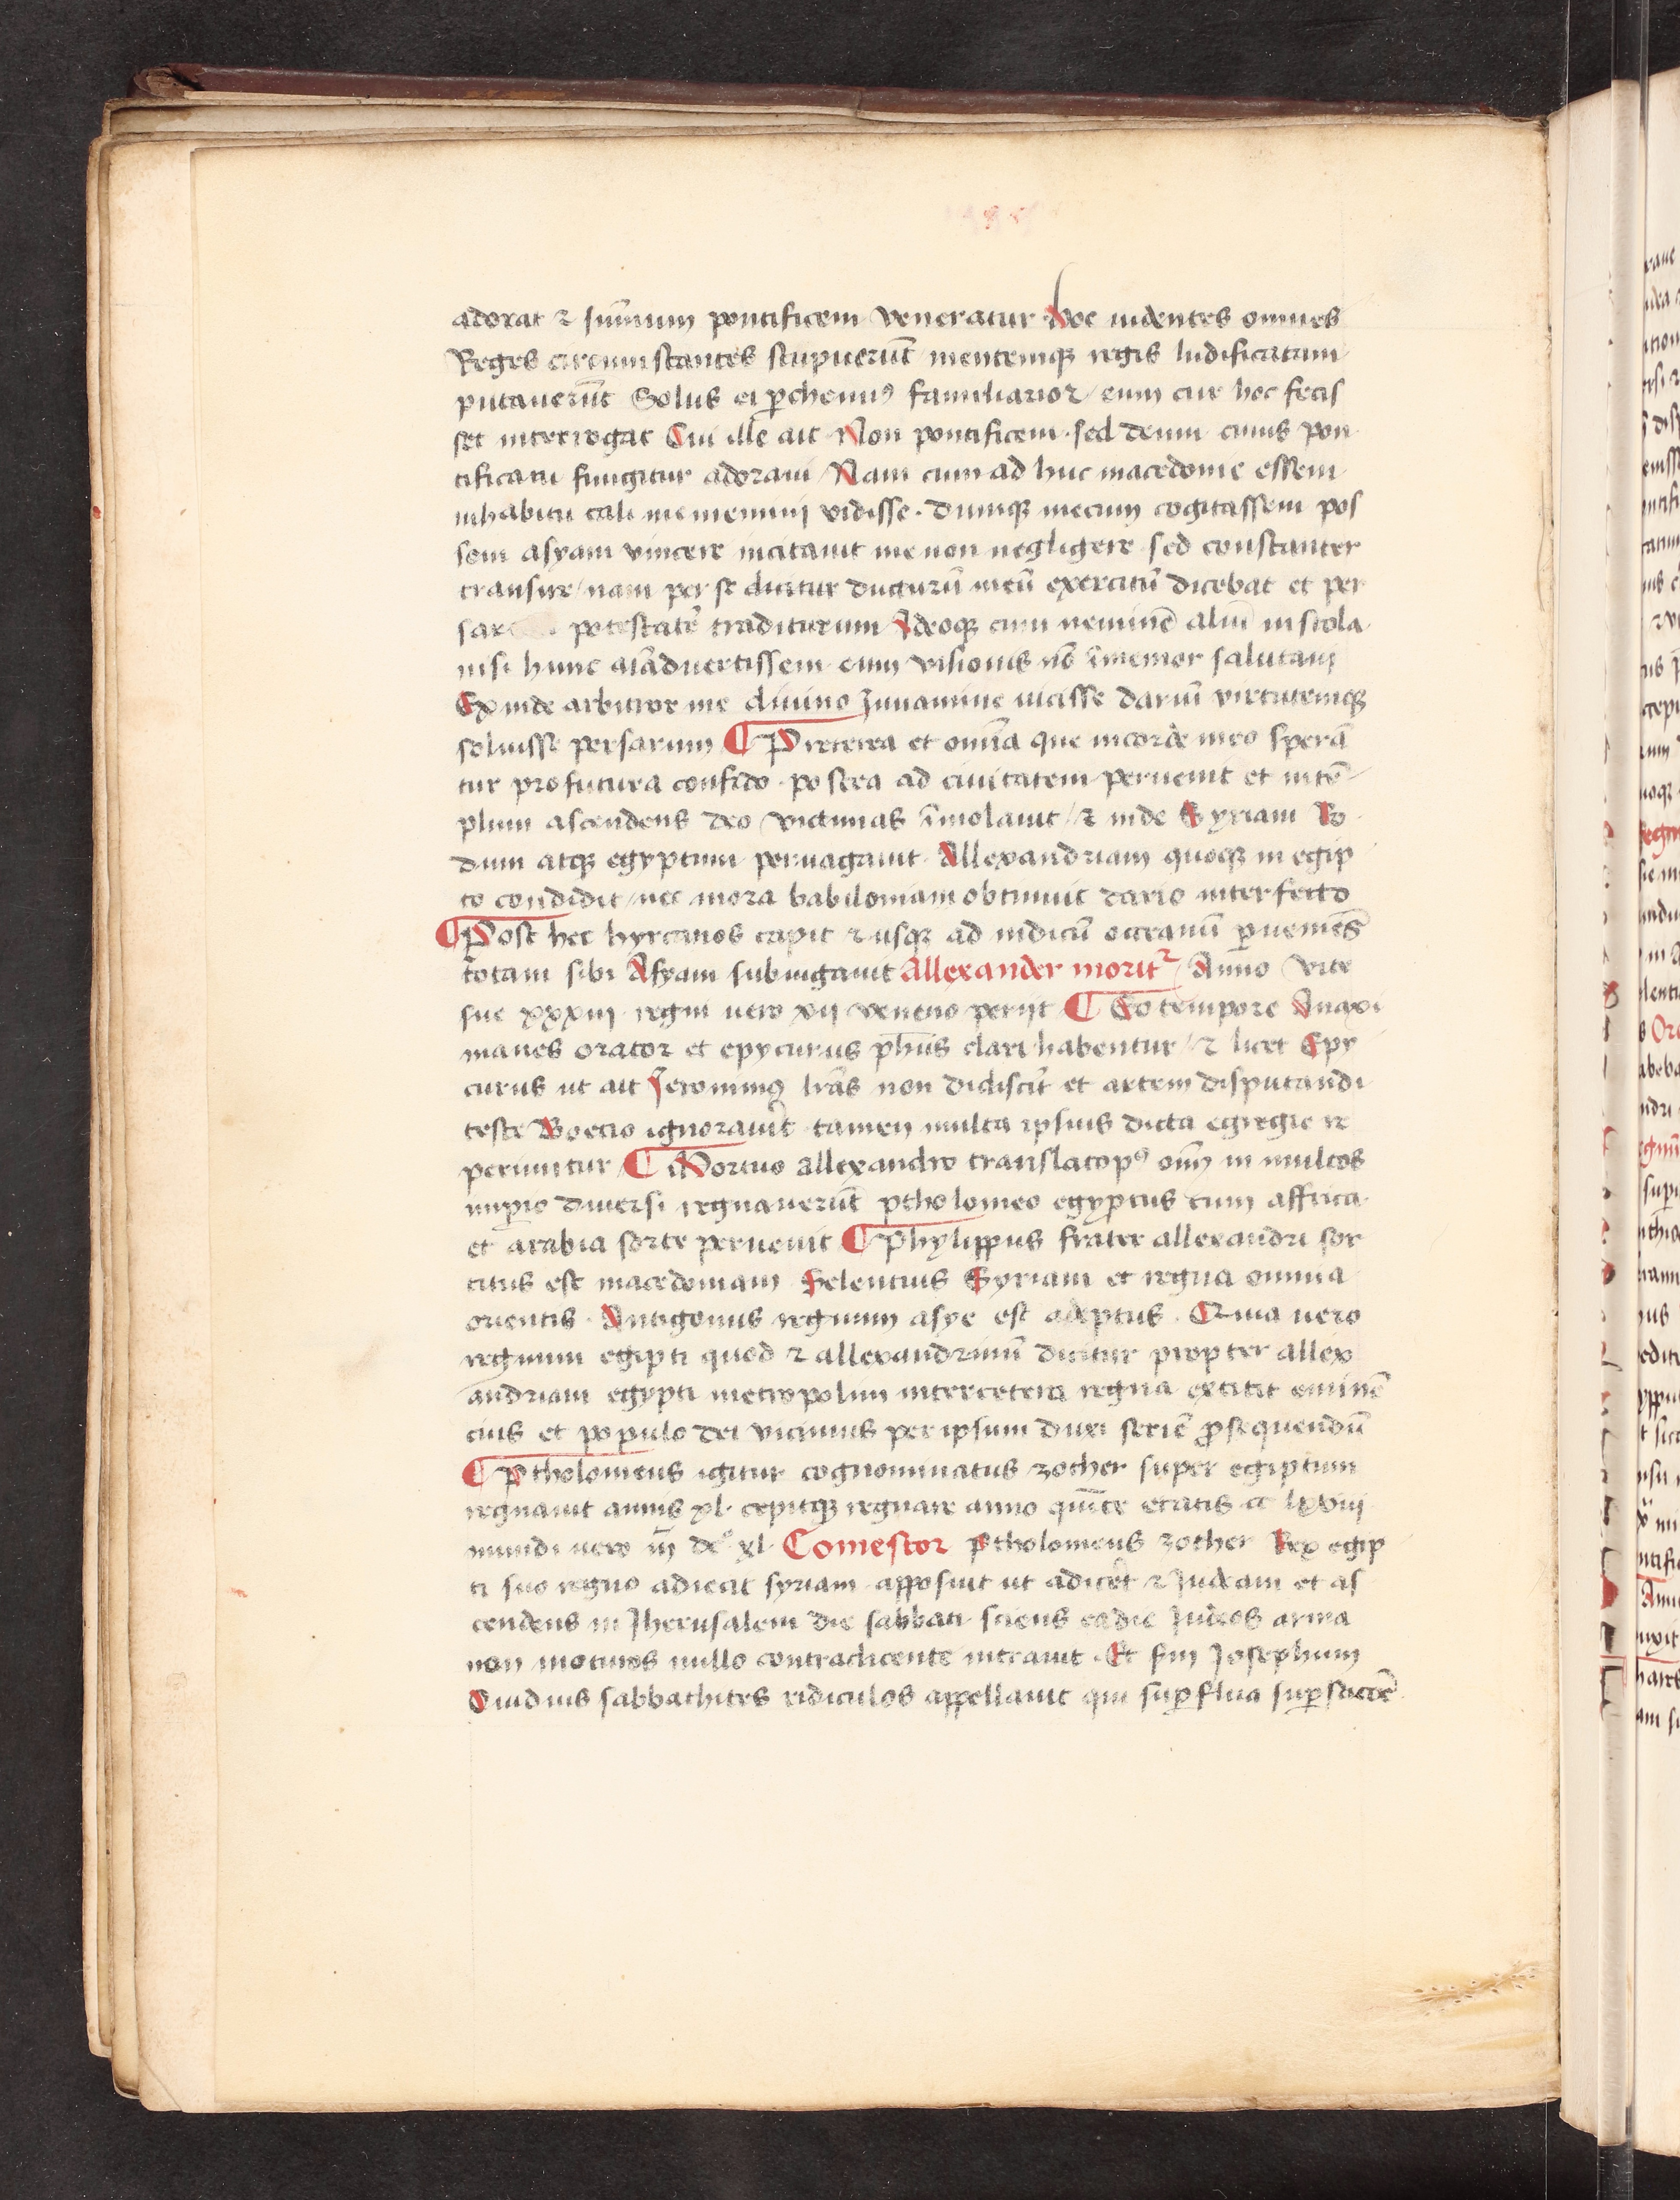 adorat ⁊ sum̄um pontificem veneratur hoc uidentes omnes
Reges circumstantes stupuerūt mentemqꝫ regis ludificatam
putauerūt Solus ei ꝑchemiꝰ familiarior / eum cur hec fecis
set interrogat Cui ille ait Non pontificem · sed deum cuius pon
tificatu fungitur adoraui / Nam cum ad huc macedonie essem
inhabitu tali me memini vidisse · dumqꝫ mecum cogitassem pos
sem asyam vincere incitauit me non negligere sed constanter
transire / nam per se ducturū meū exercitū dicebat et per
potestatē traditurum Adeoqꝫ cum neminē aliū in stola
nisi hunc aiāduertissem eum visionis nō īmemor salutaui
Exinde arbitror me diuino Juuamine uicisse dariū virtutemqꝫ
soluisse persarum ¶ Preterea et omīa que incorde meo sperā
tur profutura confido · postea ad ciuitatem peruenit et intē
plum ascendens deo victimas īmolauit / ⁊ inde Syriam Ro
dum atqꝫ egyptum peruagauit · Allexandriam quoqꝫ in egip
to condidit / nec mora babiloniam obtinuit dario interfecto
¶ Post hec hyrcanos capit ⁊ usqꝫ ad indicū occeanū ꝑueniēs
totam sibi Asyam subiugauit Allexander moritᷣ / Anno vite
sue xxxiij regni uero xij veneno perijt ¶ Eo tempore Anaxi
manes orator et epycurus ph̄us clari habentur / ⁊ licet Epy
curus ut ait Jeronimꝰ lrās non didiscit et artem disputandi
teste Boecio ignorauit tamen multa ipsius dicta egregie re
periuntur ¶ Mortuo allexandro in multos
imꝑio diuersi regnauerūt ptholomeo egyptus cum affrica
et arabia sorte peruenit ¶ Phylippus frater allexandri sor
titus est macedoniam Seleucius Syriam et regna omnia
orientis · Antigonus regnum asye est adeptus · Quia uero
regnum egipti quod ⁊ allexandrinū dicitur propter allex
andriam egypti metropolim inter cetera regna extitit eminē
cius et populo dei vicinius per ipsum duxi seriē ꝓsequendū
¶ Ptholomeus igitur cognominatus zother super egiptum
regnauit annis xl · cepitqꝫ regnare anno quīte etatis cc lxviij
mundi uero iij dcͦ xl · Comestor Ptholomeus zother Rex egip
ti suo regno adiecit syriam apposuit ut adic̄et ⁊ Judeam et as
cendens in Jherusalem die sabbati · sciens eadie Judeos arma
non moturos nullo contradicente intrauit · Et sm̄ Josephum
Ouidius sabbathites ridiculos appellauit qui suꝑflua